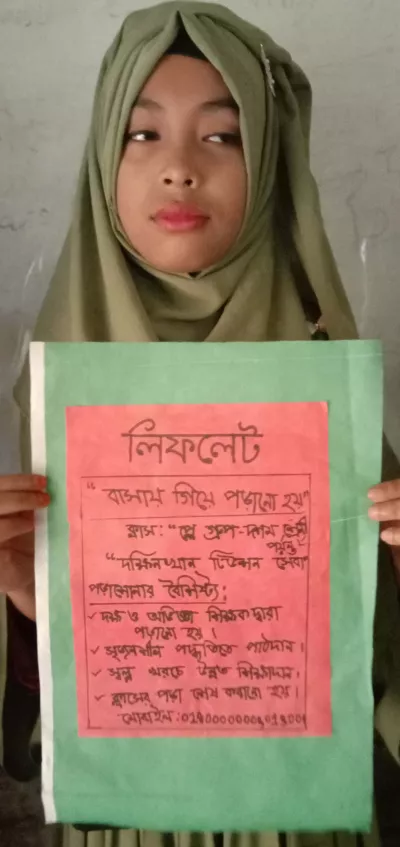 লিফলেট
"বাসায় গিয়ে পড়ানো হয়"
ক্লাস: "প্লে গ্রুপ-দশম শ্রেণী
পর্যন্ত"
"দক্ষিনখান টিউশন সেবা"
পড়াশোনার বৈশিষ্ট্য:
✓ দক্ষ ও অভিজ্ঞ শিক্ষক দ্বারা
পড়ানো হয়।
✓ সৃজনশীল পদ্ধতিতে পাঠদান।
✓ সল্প খরচে উন্নত শিক্ষাদান।
✓ ক্লাসের পড়া শেষ করানো হয়।
মোবাইল: